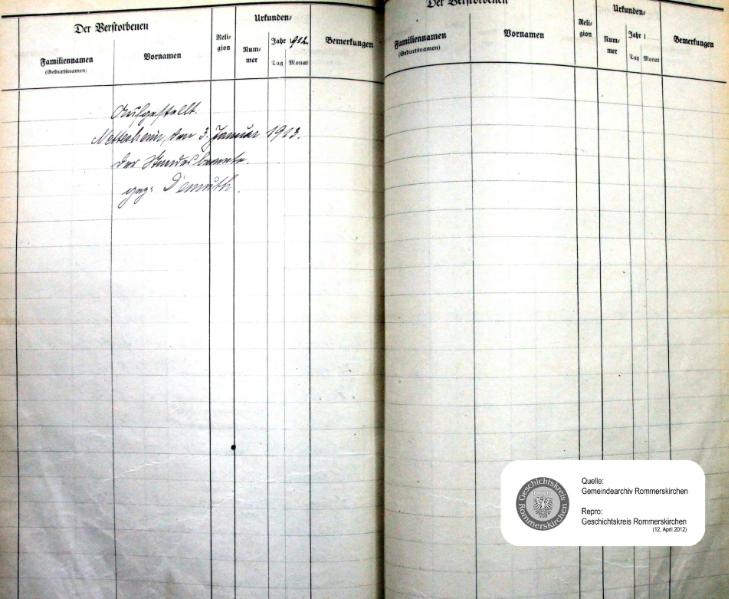 Der Verstorbenen
Familiennamen
(Geburtsnamen)
Vornamen
Reli-
gion
Urkunden-
Num-
mer
Jahr 1902
Tag Monat
Bemerkungen
Aufgestellt.
Nettesheim, den 3. Januar 1903.
Der Standesbeamte.
gez: Demuth.
Der Verstorbenen
Familiennamen
(Geburtsnamen)
Vornamen
Reli-
gion
Urkunden-
Num-
mer
Jahr 1
Tag Monat
Bemerkungen
Geschichtskreis
Rommerskirchen
Quelle:
Gemeindearchiv Rommerskirchen
Repro:
Geschichtskreis Rommerskirchen
(12. April 2012)